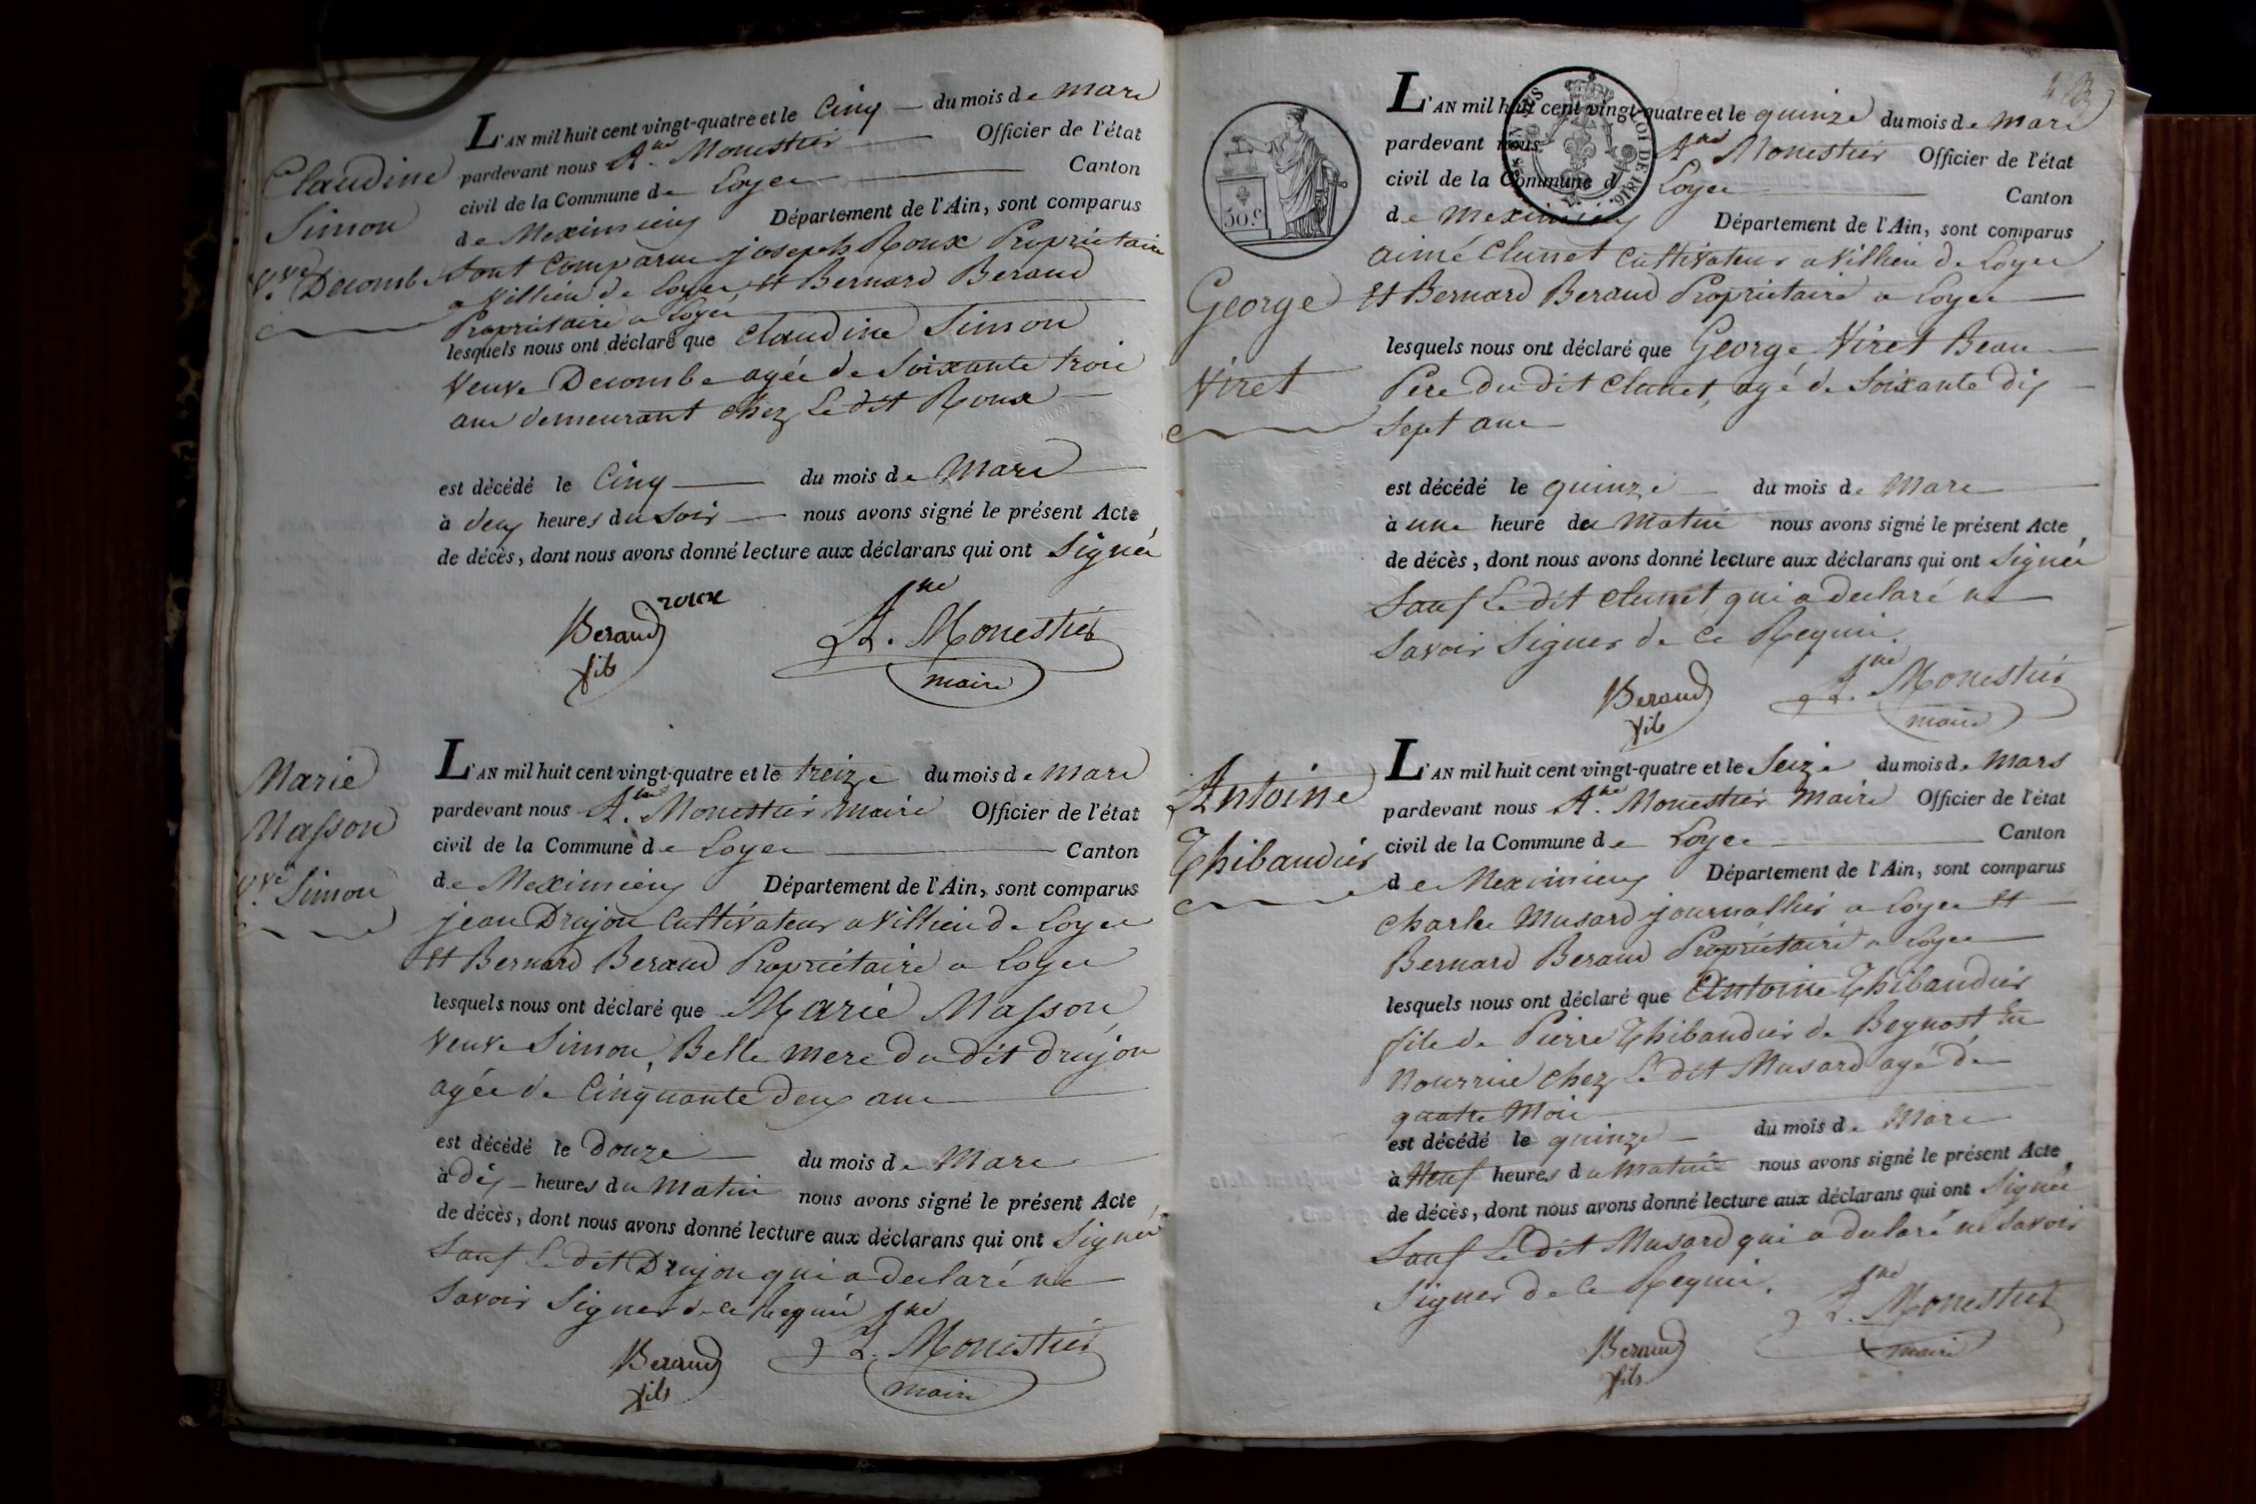 Claudine
Simon
V.ve Decombe
L'AN mil huit cent vingt-quatre et le Cinq du mois de Mars
pardevant nous A.ne Monestier Officier de l'état
civil de la Commune de Loyes Canton
de Meximieux Département de l'Ain, sont comparus
Sont Comparus joseph Roux Propriétaire
a Villieu de Loyes Et Bernard Beraud
Propriétaire a Loyes
lesquels nous ont déclaré que Claudine Simon
Veuve Decombe agée de Soixante trois
ans demeurant chez Le dit Roux
est décédé le Cinq du mois de Mars
à deux heures du Soir nous avons signé le présent Acte
de décès, dont nous avons donné lecture aux déclarans qui ont Signés
roux
Beraud
fils
A.ne Monestier
maire
Marie
Masson
V.ve Simon
L'AN mil huit cent vingt-quatre et le treize du mois de Mars
pardevant nous A.ne Monestier Maire Officier de l'état
civil de la Commune de Loyes Canton
de Meximieux Département de l'Ain, sont comparus
jean Drujon Cultivateur a Villieu de Loyes
Et Bernard Beraud Propriétaire a Loyes
lesquels nous ont déclaré que Marie Masson
Veuve Simon, Belle Mere du dit drujon
agée de Cinquante deux ans
est décédé le douze du mois de Mars
à dix heures du Matin nous avons signé le présent Acte
de décès, dont nous avons donné lecture aux déclarans qui ont Signés
Sauf Le dit Drujon qui a declaré ne
Savoir Signer de ce Requis
Beraud
fils
A.ne Monestier
maire
LOI DE 1816.
50.c
George
Viret
L'AN mil huit cent vingt-quatre et le quinze du mois de Mars
pardevant nous A.ne Monestier Officier de l'état
civil de la Commune d Loyes Canton
de Meximieux Département de l'Ain, sont comparus
aimé Clunet Cultivateur a Villieu de Loyes
Et Bernard Beraud Propriétaire a Loyes
lesquels nous ont déclaré que George Viret Beau
Pere du dit Clunet, agé de Soixante dix
Sept ans
est décédé le quinze du mois de Mars
à une heure du Matin nous avons signé le présent Acte
de décès, dont nous avons donné lecture aux déclarans qui ont Signés
Sauf Le dit Clunet qui a declaré ne
Savoir Signer de ce Requis.
Beraud
fils
A.ne Monestier
maire
Antoine
Thibaudier
L'AN mil huit cent vingt-quatre et le Seize du mois de Mars
pardevant nous A.ne Monestier Maire Officier de l'état
civil de la Commune de Loyes Canton
de Meximieux Département de l'Ain, sont comparus
Charles Musard journallier a Loyes Et
Bernard Beraud Propriétaire a Loyes
lesquels nous ont déclaré que Antoine Thibaudier
fils de Pierre Thibaudier de Beynost En
Nourrice chez Le dit Musard agé de
quatre Mois
est décédé le quinze du mois de Mars
à Neuf heures du Matin nous avons signé le présent Acte
de décès, dont nous avons donné lecture aux déclarans qui ont Signés
Sauf Le dit Musard qui a declaré ne Savoir
Signer de ce Requis.
Beraud
fils
A.ne Monestier
maire